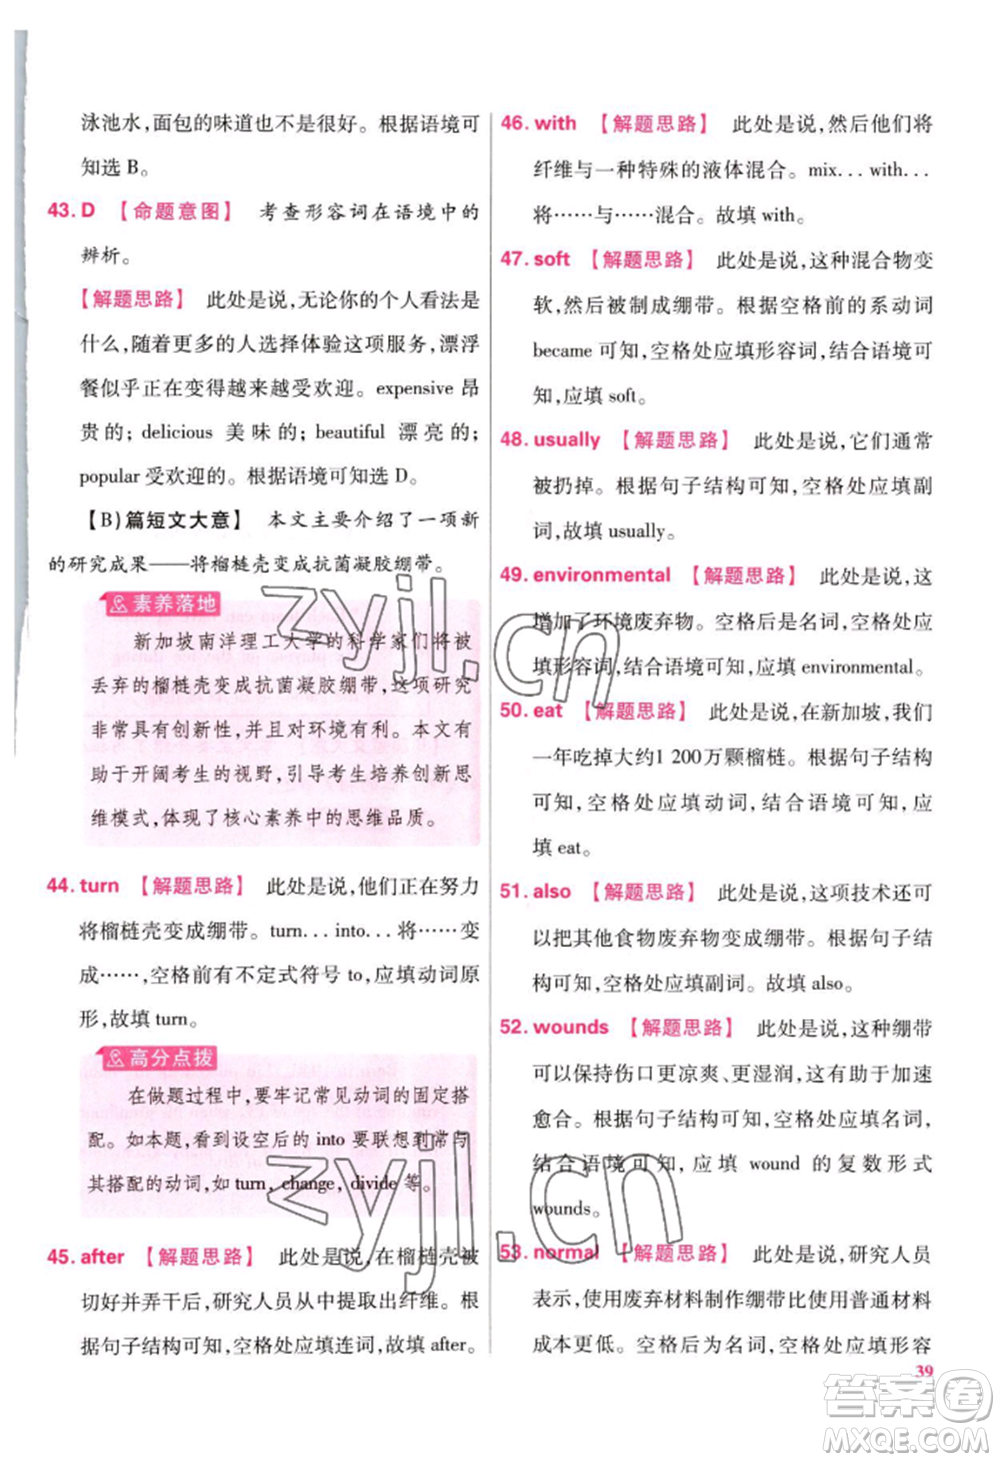 泳池水,面包的味道也不是很好。根据语境可
知选 B。
43. D 【命题意图】 考查形容词在语境中的
辨析。
【解题思路】 此处是说,无论你的个人看法是
什么,随着更多的人选择体验这项服务,漂浮
餐似乎正在变得越来越受欢迎。expensive 昂
贵的; delicious 美味的; beautiful 漂亮的;
popular 受欢迎的。根据语境可知选 D。
【(B)篇短文大意】 本文主要介绍了一项新
的研究成果——将榴梿壳变成抗菌凝胶绷带。
素养落地
新加坡南洋理工大学的科学家们将被
丢弃的榴梿壳变成抗菌凝胶绷带,这项研究
非常具有创新性,并且对环境有利。本文有
助于开阔考生的视野,引导考生培养创新思
维模式,体现了核心素养中的思维品质。
44. turn 【解题思路】 此处是说,他们正在努力
将榴梿壳变成绷带。turn... into... 将……变
成……,空格前有不定式符号 to,应填动词原
形,故填 turn。
高分点拨
在做题过程中,要牢记常见动词的固定搭
配。如本题,看到设空后的 into 要联想到常与
其搭配的动词,如 turn, change, divide 等。
45. after 【解题思路】 此处是说,在榴梿壳被
切好并弄干后,研究人员从中提取出纤维。根
据句子结构可知,空格处应填连词,故填 after。
46. with 【解题思路】 此处是说,然后他们将
纤维与一种特殊的液体混合。mix... with...
将……与……混合。故填 with。
47. soft 【解题思路】 此处是说,这种混合物变
软,然后被制成绷带。根据空格前的系动词
became 可知,空格处应填形容词,结合语境可
知,应填 soft。
48. usually 【解题思路】 此处是说,它们通常
被扔掉。根据句子结构可知,空格处应填副
词,故填 usually。
49. environmental 【解题思路】 此处是说,这
增加了环境废弃物。空格后是名词,空格处应
填形容词,结合语境可知,应填 environmental。
50. eat 【解题思路】 此处是说,在新加坡,我们
一年吃掉大约1 200万颗榴梿。根据句子结构
可知,空格处应填动词,结合语境可知,应
填 eat。
51. also 【解题思路】 此处是说,这项技术还可
以把其他食物废弃物变成绷带。根据句子结
构可知,空格处应填副词。故填 also。
52. wounds 【解题思路】 此处是说,这种绷带
可以保持伤口更凉爽、更湿润,有助于加速
愈合。根据句子结构可知,空格处应填名词,
结合语境可知,应填 wound 的复数形式
wounds。
53. normal 【解题思路】 此处是说,研究人员
表示,使用废弃材料制作绷带比使用普通材料
成本更低。空格后为名词,空格处应填形容
39
zyjl.cn
zyjl.cn
答案圈
MXQE.COM